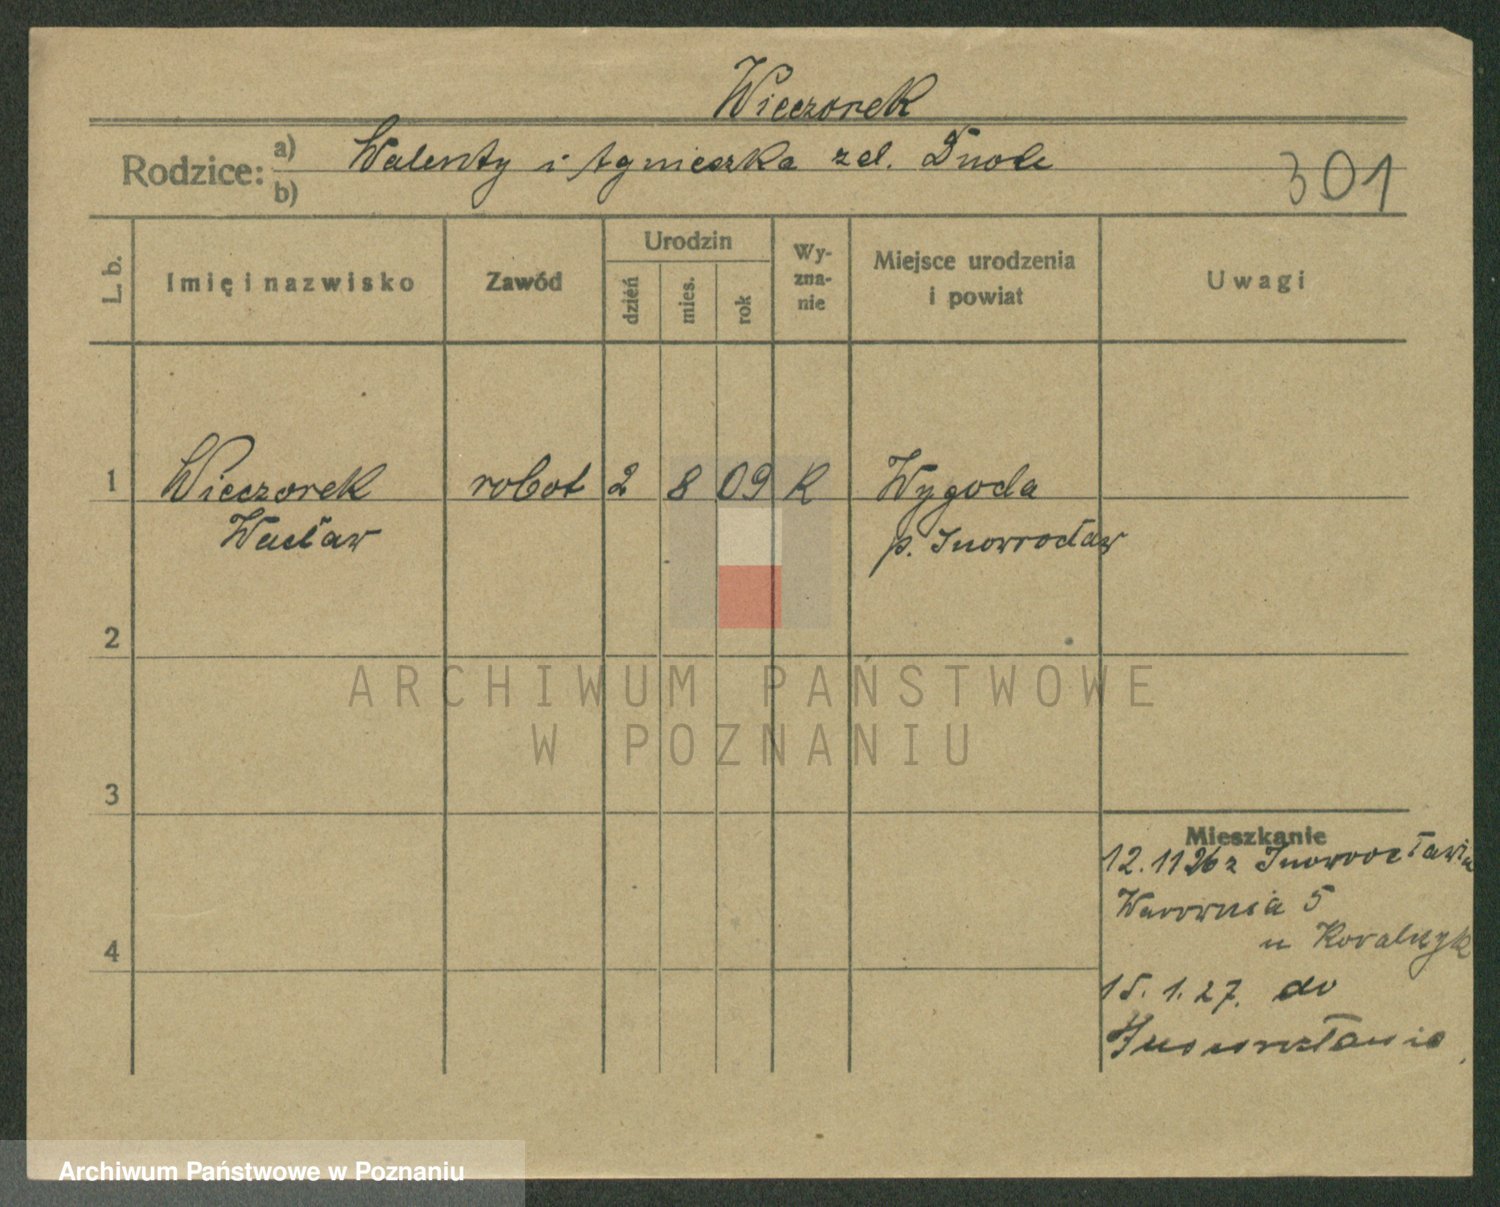 Wieczorek
Rodzice: a) Walenty i Agnieszka z d.
b)
301
L. b.
Imię i nazwisko
Zawód
Urodzin
dzień
mies.
rok
Wy-
zna-
nie
Miejsce urodzenia
i powiat
Uwagi
1 Wieczorek robot 2 8 09 K Wygoda
Wacław p. Inowrocław
2
3
4
Mieszkanie
12.11 26 z Inowrocławia
5
u
15. 1. 27. do
ARCHIWUM PAŃSTWOWE
W POZNANIU
Archiwum Państwowe w Poznaniu